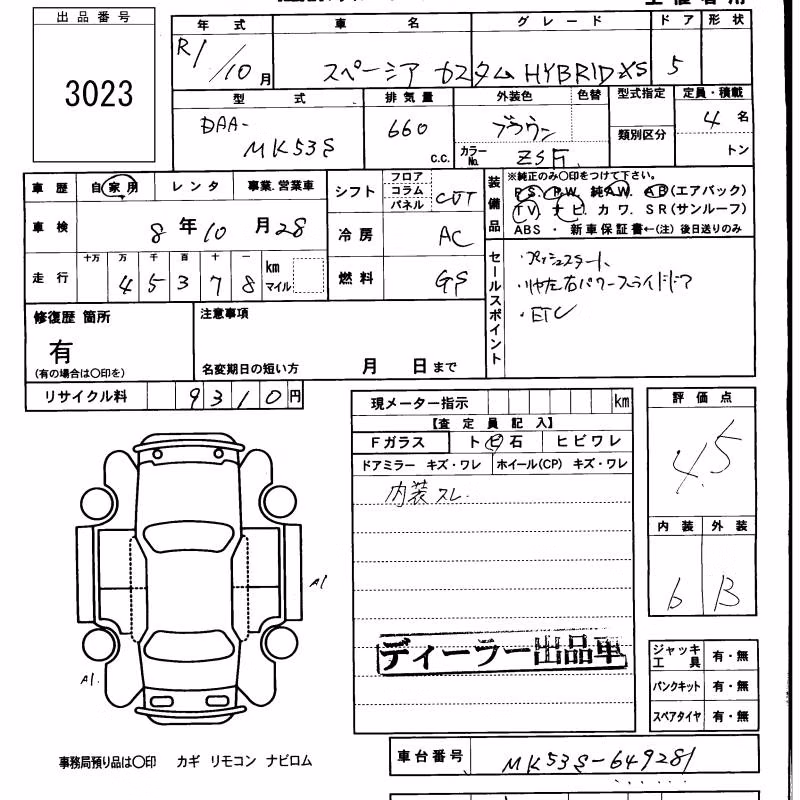 出品番号
3023
年式 車名 グレード ドア 形状
R1/10月 スペーシア カスタム HYBRID XS 5
型式 排気量 外装色 色替 型式指定 定員・積載
DAA-MK53S 660 c.c. ブラウン 4名
カラーNo. 類別区分 トン
車歴 自家用 レンタ 事業.営業車
シフト フロア コラム パネル CVT
装備品 ※純正のみ〇印をつけて下さい。
P S. P W. 純A W. A B(エアバック)
T V. ナ ビ. カ ワ. S R(サンルーフ)
ABS ・ 新車保証書←(注) 後日送りのみ
車検 8年10月28
冷房 AC
走行 十万 万 千 百 十 一 km マイル
4 5 3 7 8
燃料 GS
セールスポイント
・プッシュスタート
・リヤ左右パワースライドドア
・ETC
修復歴 箇所
有
(有の場合は〇印を)
注意事項
名変期日の短い方 月 日まで
リサイクル料 9310円
現メーター指示 km
【査定員記入】
Fガラス ト ビ 石 ヒビワレ
ドアミラー キズ・ワレ ホイール(CP) キズ・ワレ
内装スレ.
評価点
4.5
内装 外装
6 B
A1
A1.
ディーラー出品車
ジャッキ工具 有・無
パンクキット 有・無
スペアタイヤ 有・無
事務局預り品は〇印 カギ リモコン ナビロム
車台番号 MK53S-649281